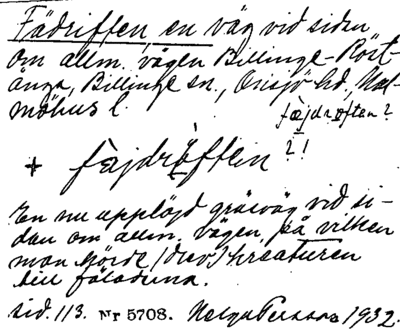 Fädriften en väg vid sidan
om allm. vägen Billinge-Röst-
ånga, Billinge sn., Onsjö hd, Mal-
möhus l.
fäjdrøften?
+ fàjdrö̀ften ?!
En nu upplöjd gräsväg vid si-
dan om allm. vägen, på vilken
man körde (drev) kreaturen
till fäladerna.
sid. 113. Nr 5708. Helge Persson 1932.